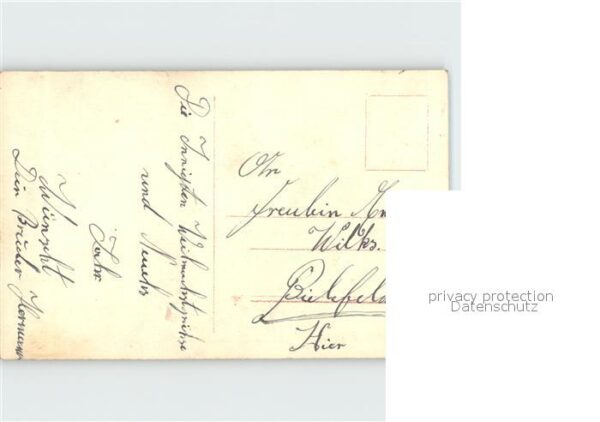 Die Innigsten Weihnachtsgrüsse
und Neues
Jahr
Wünscht
Dein Bruder Hermann
An
Freulein
Wilks.
Bielefeld
Hier
privacy protection
Datenschutz